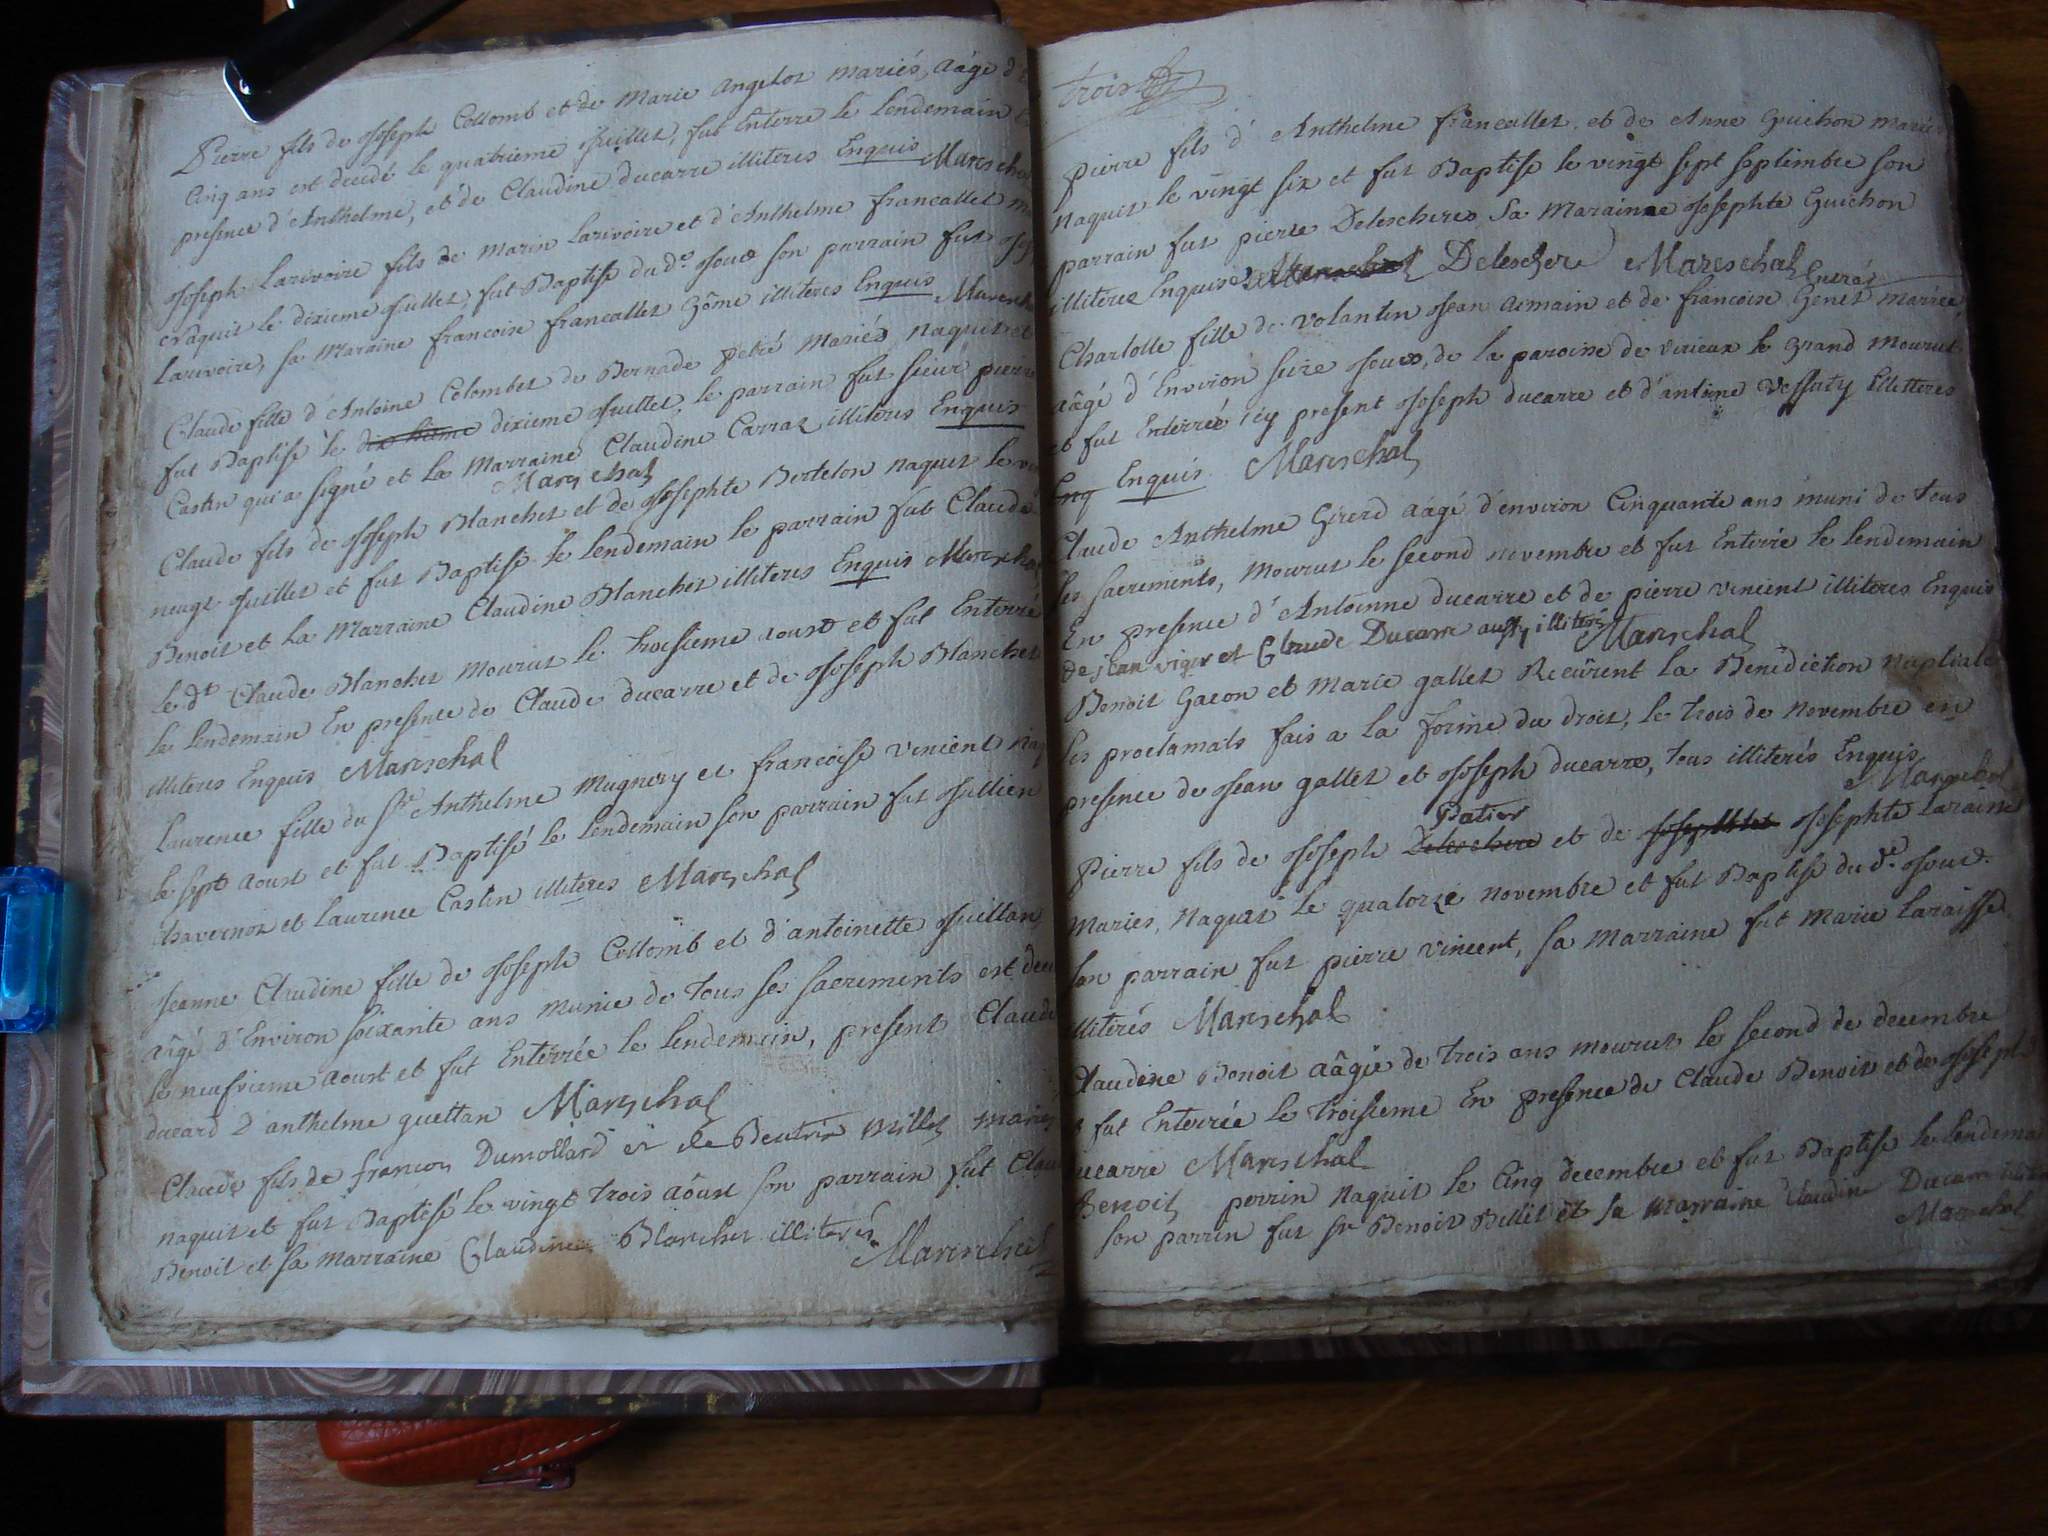 Pierre fils de Joseph Collomb et de Marie Angelot mariés, aâgé d
Cinq ans est decedé le quatrieme Juillet, fut Enterre le lendemain En
presence d'Anthelme, et de Claudine ducarre illiteres Enquis Mareschal
Joseph Larivoire fils de Marin Larivoire et d'Anthelme francallet
naquit le dixieme Juillet, fut Baptise du d.e Jour son parrain fut Jos
Larivoire, sa Maraine francoise francallet illiteres Enquis Maresch
Claude fille d'Antoine Colombet de Bernade petré Mariés naquit et
fut Baptisé le dixieme Juillet, le parrain fut sieur pierre
Castin qui a signé et la Marraine Claudine Carraz illiteres Enquis
Mareschal
Claude fils de Joseph Blanchet et de Josephte Bertelon naquit le vin
neuft Juillet et fut Baptisé le lendemain le parrain fut Claude
Benoit et la Marraine Claudine Blanchet illiteres Enquis Mareschal
le dt Claude Blanchet mourut le troisieme aoust et fut Enterré
le lendemain En presence de Claude ducarre et de Joseph Blanchet
illiteres Enquis Mareschal
Laurence fille du Sr Anthelme Mugnery et francoise vincent naq
le sept aoust et fut Baptisé le lendemain son parrain fut Jullien
Chavernoz et Laurence Castin illiteres Mareschal
Jeanne Claudine fille de Joseph Collomb et d'antoinette Juillan
aâgé d'Environ soixante ans munie de tous ses sacrements est dece
le neufvieme aoust et fut Enterrée le lendemain, present Claude
ducard d'anthelme guettan Mareschal
Claude fils de francois Dumollard et de Beatrix Millet mariés
naquit et fut Baptisé le vingt trois aôust son parrain fut Claude
Benoit et sa marraine Claudine Blanchet illiterés
Mareschal
trois
pierre fils d'Anthelme francallet et de Anne Guichon mariés
naquit le vingt six et fut Baptise le vingt sept septembre son
parrain fut pierre Delescheres sa Marainne Josephte Guichon
illiteres Enquis Mareschal Delescher Mareschal Curé
Charlotte fille de volantin Jean armain et de francoise Genet mariée
aâgé d'Environ seize Jours, de la paroisse de virieux le grand mourut
et fut Enterrée icy present Joseph ducarre et d'antoine Vessaty illetteres
Enq Enquis Mareschal
Claude Anthelme Girerd aâgé d'environ Cinquante ans muni de tous
les sacrements, mourut le second novembre et fut Enterré le lendemain
En presence d'Antoinne ducarre et de pierre vincent illiteres Enquis
de jean viger et Claude Ducarre aussy illiterés Mareschal
Benoit Gacon et marie gallet Recûrent la Benediction nuptiale
les proclamats fais a la forme du droit, le trois de novembre en
presence de Jean gallet et Joseph ducarre, tous illiterés Enquis
Mareschal
Patier
Pierre fils de Joseph Delescheré et de Josephte Josephte Laraine
Mariés, Naquit le quatorze novembre et fut Baptisé du d.e Jour.
son parrain fut pierre vincent, sa marraine fut marie Laraisse
illiterés Mareschal
Claudine Benoit aâgée de trois ans mourut le second de decembre
et fut Enterrée le troisieme En presence de Claude Benoit et de Joseph
ducarre Mareschal
Benoit perrin naquit le Cinq decembre et fut Baptisé le lendemain
son parrin fut Sr Benoit Billiet et sa marraine Claudine Ducarre
Mareschal